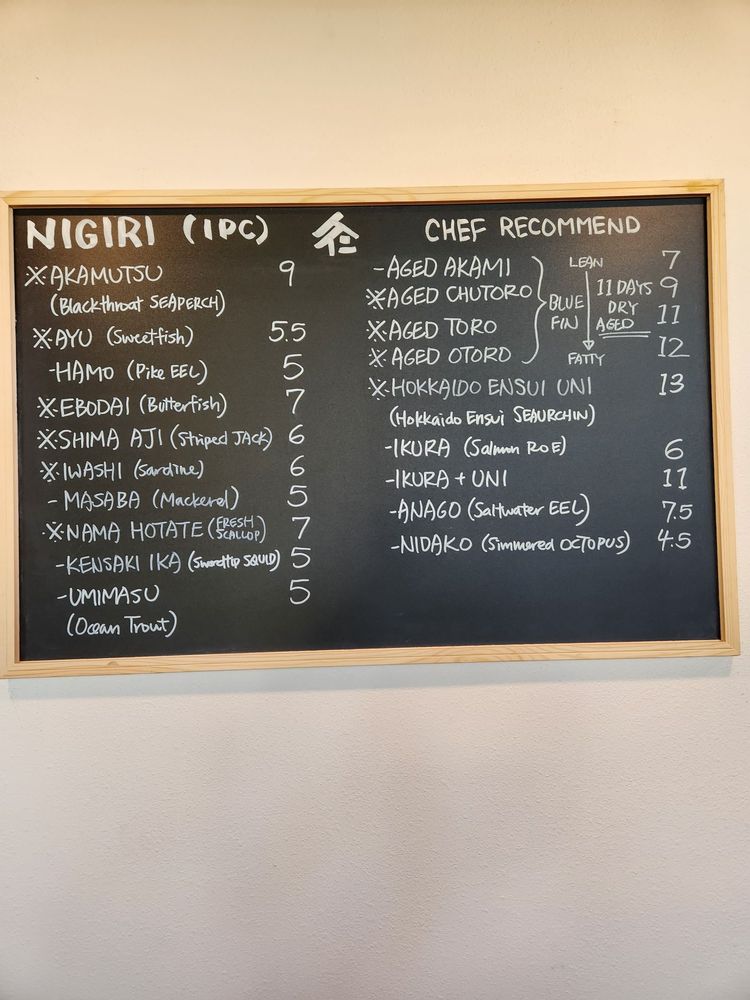 NIGIRI (1PC)
※AKAMUTSU 9
(Blackthroat SEAPERCH)
※AYU (Sweetfish) 5.5
-HAMO (Pike EEL) 5
※EBODAI (Butterfish) 7
※SHIMA AJI (Striped JACK) 6
※IWASHI (Sardine) 6
-MASABA (Mackerel) 5
※NAMA HOTATE (FRESH SCALLOP) 7
-KENSAKI IKA (Swordtip SQUID) 5
-UMIMASU 5
(Ocean Trout)
CHEF RECOMMEND
-AGED AKAMI 7
※AGED CHUTORO 9
※AGED TORO 11
※AGED OTORO 12
BLUE
FIN
LEAN
FATTY
11 DAYS
DRY
AGED
※HOKKAIDO ENSUI UNI 13
(Hokkaido Ensui SEAURCHIN)
-IKURA (Salmon ROE) 6
-IKURA + UNI 11
-ANAGO (Saltwater EEL) 7.5
-NIDAKO (Simmered OCTOPUS) 4.5